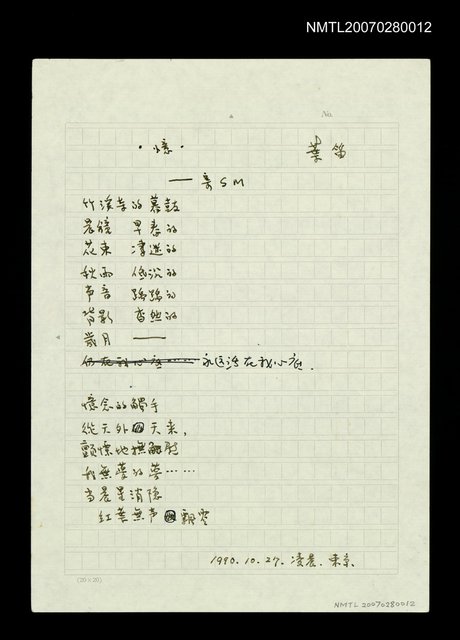 NMTL20070280012
No.
・憶・ 葉笛
——寄SM
竹溪寺的暮鼓
晨鐘 早春的
花束 凄迷的
秋雨 低沉的
声音 踽踽的
背影 杳然的
歲月 ——
仍在我心底…… 永远活在我心底.
憶念的觸手
從天外 天來,
顫慄地撫慰
我無夢的夢……
当晨星消隐
紅葉無声 飄零
1990.10.27.凌晨.東京
(20×20)
NMTL20070280012